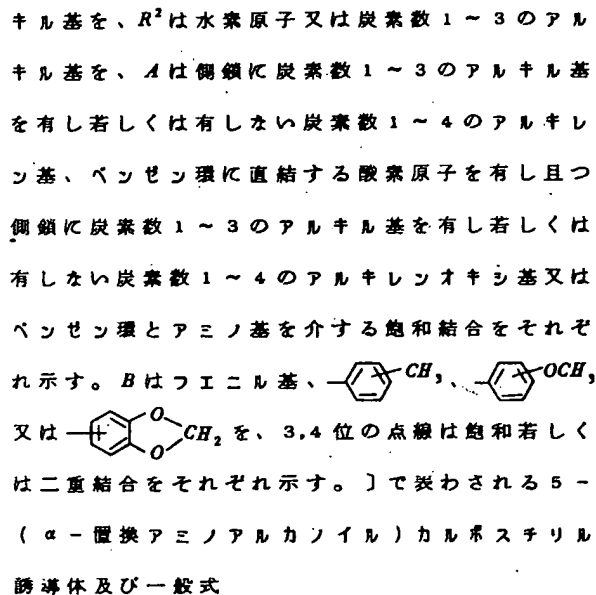 キル基を、R²は水素原子又は炭素数1～3のアル
キル基を、Aは側鎖に炭素数1～3のアルキル基
を有し若しくは有しない炭素数1～4のアルキレ
ン基、ベンゼン環に直結する酸素原子を有し且つ
側鎖に炭素数1～3のアルキル基を有し若しくは
有しない炭素数1～4のアルキレンオキシ基又は
ベンゼン環とアミノ基を介する飽和結合をそれぞ
れ示す。Bはフエニル基、CH₃、OCH₃、
又はO O CH₂を、3,4位の点線は飽和若しく
は二重結合をそれぞれ示す。〕で表わされる5－
(α－置換アミノアルカノイル)カルボスチリル
誘導体及び一般式